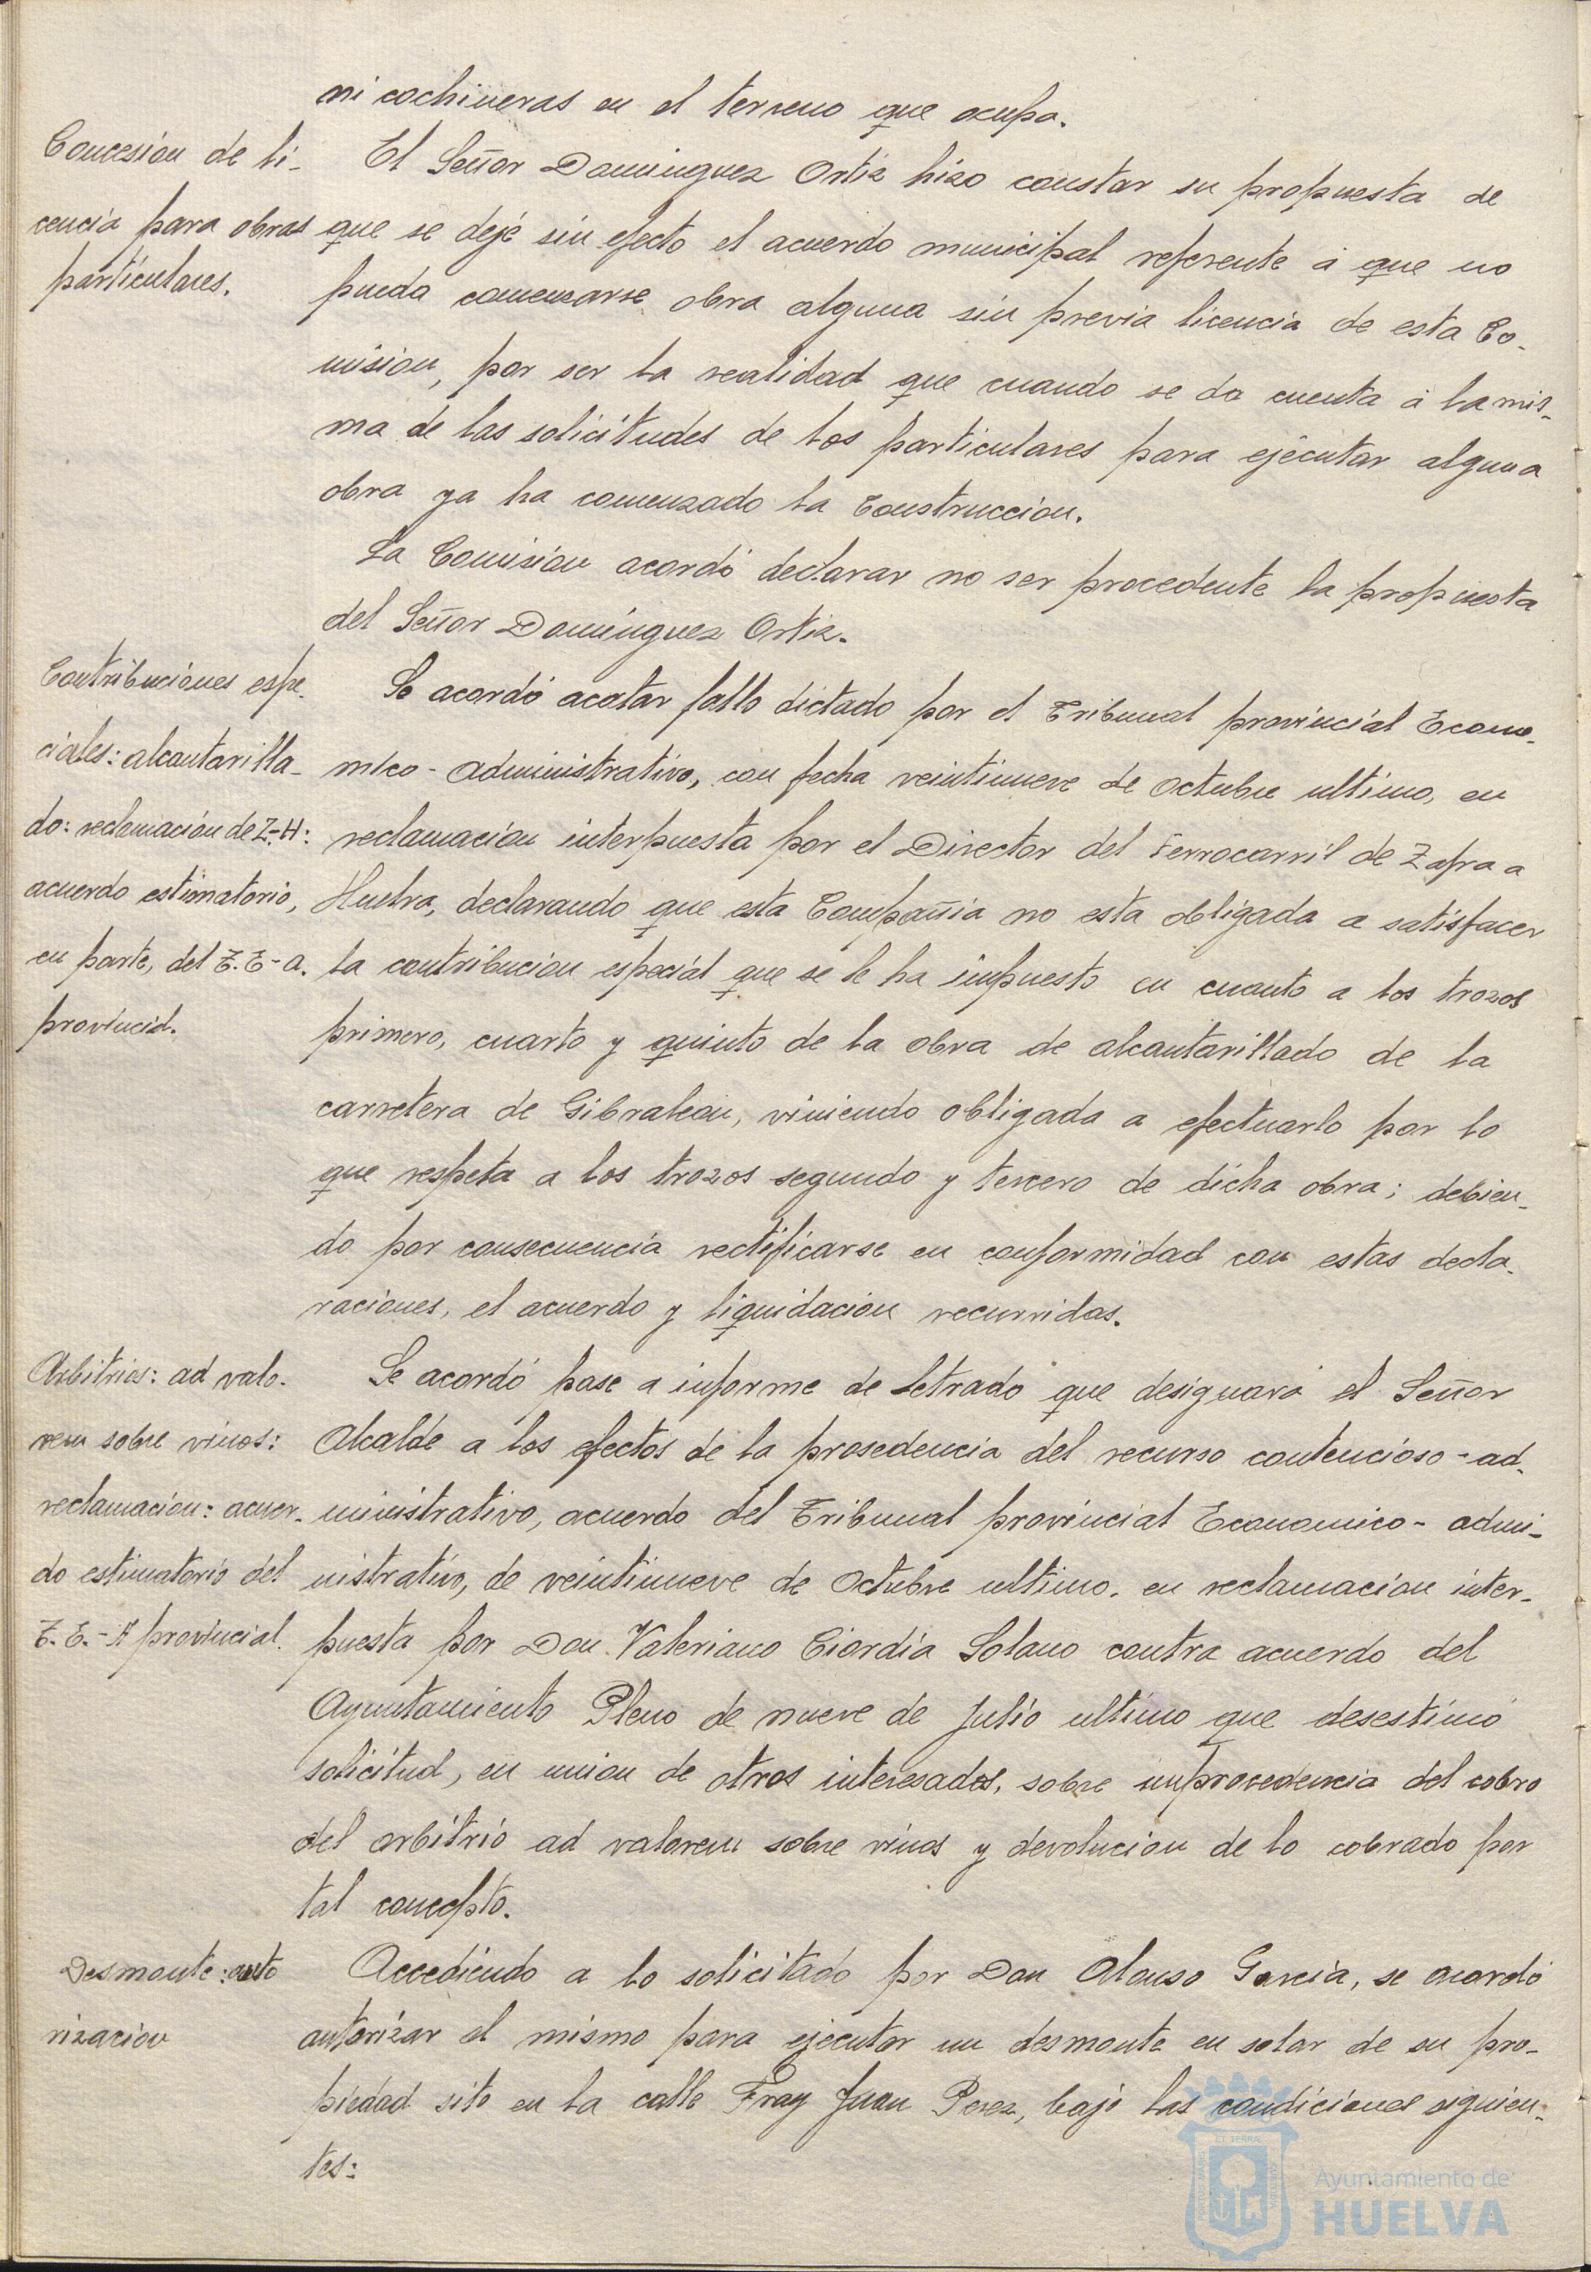 ni cochineras en el terreno que ocupa.
Concesión de li-
cencia para obras
particulares.
El Señor Dominguez Ortiz hizo constar su propuesta de
que se deje sin efecto el acuerdo municipal referente a que no
pueda comenzarse obra alguna sin previa licencia de esta Co-
mision, por ser la realidad que cuando se da cuenta a la mis-
ma de las solicitudes de los particulares para ejecutar alguna
obra ya ha comenzado la construccion.
La Comisión acordó declarar no ser procedente la propuesta
del Señor Dominguez Ortiz.
Contribuciones espe-
ciales: alcantarilla-
do: reclamación de Z-H:
acuerdo estimatorio,
en parte, del T.E-A.
provincial.
Se acordó acatar fallo dictado por el Tribunal provincial Econo-
mico-administrativo, con fecha veintinueve de Octubre ultimo, en
reclamación interpuesta por el Director del Ferrocarril de Zafra a
Huelva, declarando que esta Compañia no esta obligada a satisfacer
la contribucion especial que se le ha impuesto en cuanto a los trozos
primero, cuarto y quinto de la obra de alcantarillado de la
carretera de Gibraleon, viniendo obligada a efectuarlo por lo
que respeta a los trozos segundo y tercero de dicha obra; debien-
do por consecuencia rectificarse en conformidad con estas decla-
raciones, el acuerdo y liquidacion recurridas.
Arbitrios: ad valo-
rem sobre vinos:
reclamacion: acuer-
do estimatorio del
T.E.-A provincial.
Se acordó pase a informe de Letrado que designará el Señor
Alcalde a los efectos de la prosedencia del recurso contencioso-ad-
ministrativo, acuerdo del Tribunal provincial Economico-admi-
nistrativo, de veintinueve de Octubre ultimo, en reclamacion inter-
puesta por Don Valeriano Ciordia Solano contra acuerdo del
Ayuntamiento Pleno de nueve de Julio ultimo que desestimó
solicitud, en union de otros interesados, sobre improcedencia del cobro
del arbitrio ad valorem sobre vinos y devolucion de lo cobrado por
tal concepto.
Desmonte: auto
rizacion
Accediendo a lo solicitado por Don Alonso Garcia, se acordó
autorizar al mismo para ejecutar un desmonte en solar de su pro-
piedad sito en la calle Fray Juan Perez, bajo las condiciones siguien-
tes:
Ayuntamiento de
HUELVA